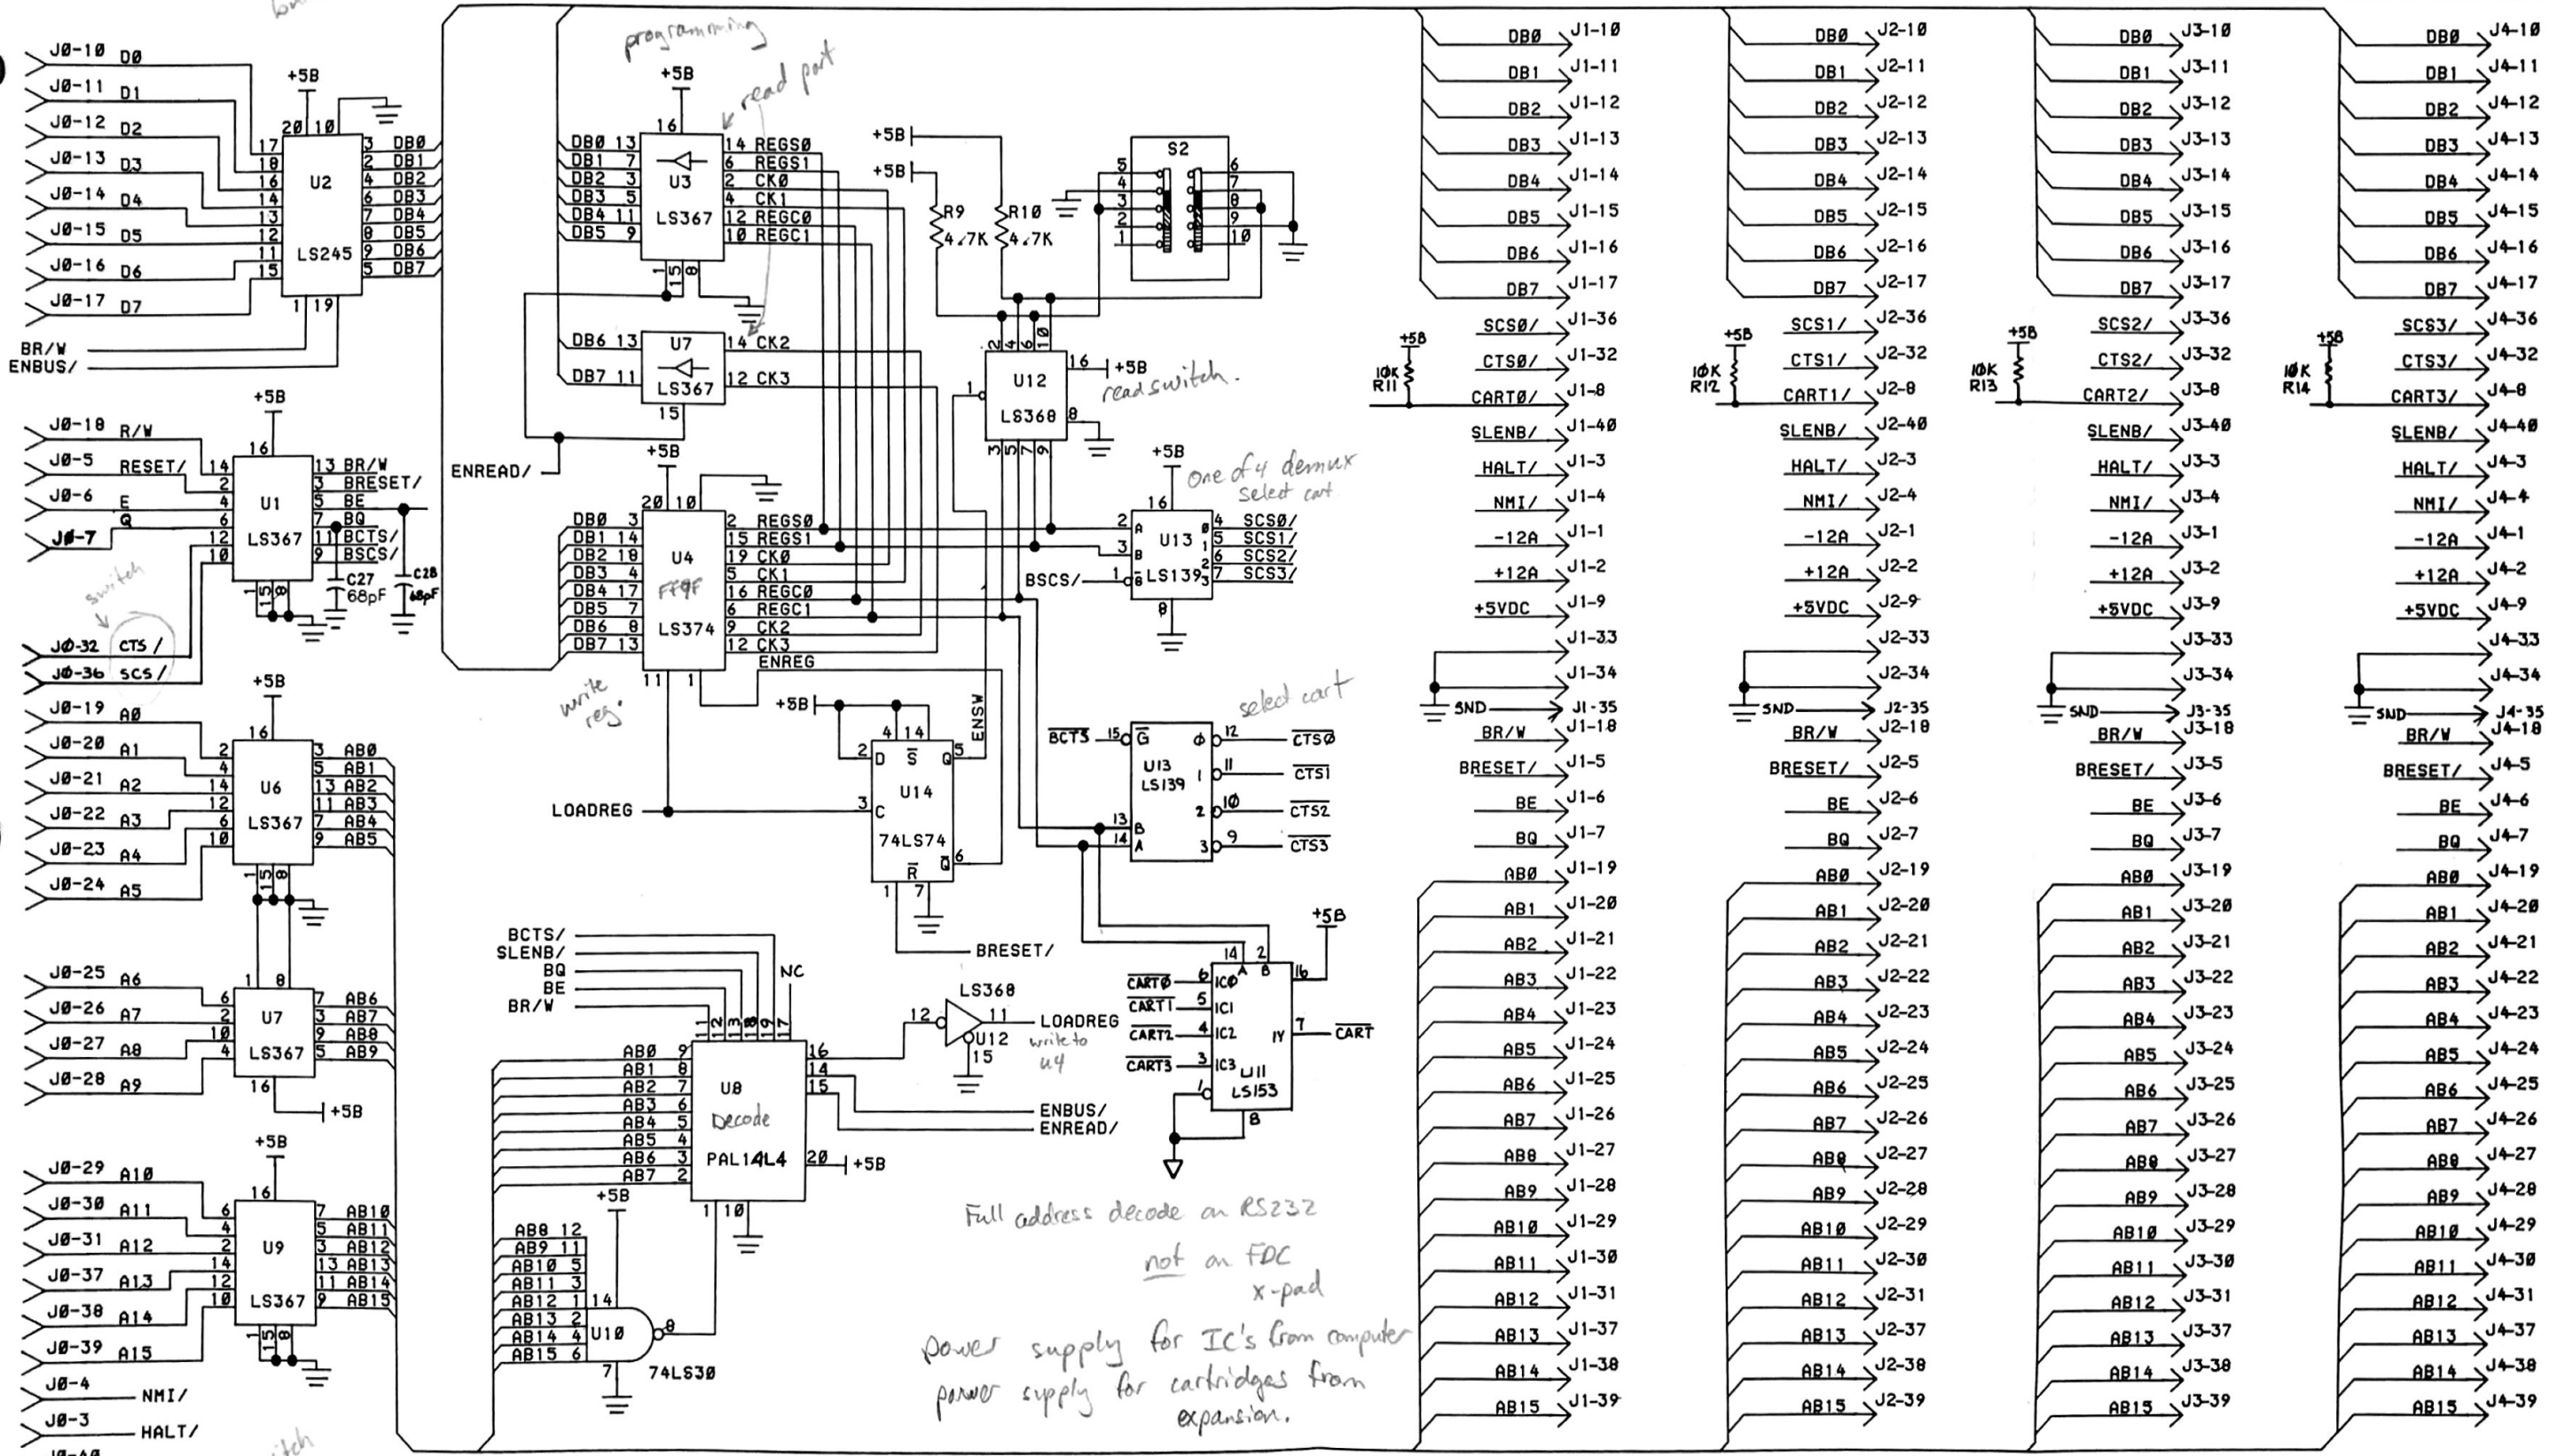 J0-10 D0
J0-11 D1
J0-12 D2
J0-13 D3
J0-14 D4
J0-15 D5
J0-16 D6
J0-17 D7
BR/W
ENBUS/
+5B
20 10
17 18 16 14 13 12 11 15
U2
LS245
3 DB0
2 DB1
4 DB2
6 DB3
7 DB4
8 DB5
9 DB6
5 DB7
1 19
J0-18 R/W
J0-5 RESET/
J0-6 E
J0-7 Q
+5B
16
14 2 4 6 12 10
U1
LS367
13 BR/W
3 BRESET/
5 BE
7 BQ
11 BCTS/
9 BSCS/
1 15 8
C27
68pF
C28
68pF
switch
J0-32 CTS/
J0-36 SCS/
J0-19 A0
J0-20 A1
J0-21 A2
J0-22 A3
J0-23 A4
J0-24 A5
+5B
16
2 4 14 12 6 10
U6
LS367
3 AB0
5 AB1
13 AB2
11 AB3
7 AB4
9 AB5
1 15 8
J0-25 A6
J0-26 A7
J0-27 A8
J0-28 A9
1 8
6 2 10 4
U7
LS367
7 AB6
3 AB7
9 AB8
5 AB9
16
+5B
J0-29 A10
J0-30 A11
J0-31 A12
J0-37 A13
J0-38 A14
J0-39 A15
+5B
16
6 4 2 14 12 10
U9
LS367
7 AB10
5 AB11
3 AB12
13 AB13
11 AB14
9 AB15
1 15 8
J0-4 NMI/
J0-3 HALT/
programming
read port
+5B
16
DB0 13
DB1 7
DB2 3
DB3 5
DB4 11
DB5 9
U3
LS367
14 REGS0
6 REGS1
2 CK0
4 CK1
12 REGC0
10 REGC1
1 15 8
DB6 13
DB7 11
U7
LS367
14 CK2
12 CK3
15
ENREAD/
+5B
20 10
DB0 3
DB1 14
DB2 18
DB3 4
DB4 17
DB5 7
DB6 8
DB7 13
U4
LS374
2 REGS0
15 REGS1
19 CK0
5 CK1
16 REGC0
6 REGC1
9 CK2
12 CK3
ENREG
11 1
write
reg.
+5B
+5B
R9
4.7K
R10
4.7K
S2
5 4 3 2 1
6 7 8 9 10
2 4 6 10
1
U12
LS368
16 +5B
8
3 5 7 9
read switch.
One of 4 demux
select cart
+5B
16
2 A
3 B
BSCS/ 1 G
U13
LS139
0 4 SCS0/
1 5 SCS1/
2 6 SCS2/
3 7 SCS3/
8
+5B
4 14
2 D S Q 5
ENSW
U14
LOADREG
3 C
74LS74
R Q 6
1 7
BRESET/
select cart
BCTS 15 G
U13
LS139
0 12 CTS0
1 11 CTS1
2 10 CTS2
3 9 CTS3
13 B
14 A
BCTS/
SLENB/
BQ
BE
BR/W
NC
11 12 13 18 19 17
AB0 9
AB1 8
AB2 7
AB3 6
AB4 5
AB5 4
AB6 3
AB7 2
U8
Decode
PAL14L4
16
14
15
20 +5B
1 10
LS368
12 11 LOADREG
U12
15
write to
U4
ENBUS/
ENREAD/
+5B
AB8 12
AB9 11
AB10 5
AB11 3
AB12 1
AB13 2
AB14 4
AB15 6
14
U10
8
7
74LS30
+5B
14 2
A B
16
CART0 6 IC0
CART1 5 IC1
CART2 4 IC2
CART3 3 IC3
1
IY 7 CART
U11
LS153
8
Full address decode on RS232
not on FDC
x-pad
power supply for IC's from computer
power supply for cartridges from
expansion.
DB0 J1-10
DB1 J1-11
DB2 J1-12
DB3 J1-13
DB4 J1-14
DB5 J1-15
DB6 J1-16
DB7 J1-17
SCS0/ J1-36
+5B
CTS0/ J1-32
10K
R11
CART0/ J1-8
SLENB/ J1-40
HALT/ J1-3
NMI/ J1-4
-12A J1-1
+12A J1-2
+5VDC J1-9
J1-33
J1-34
SND J1-35
BR/W J1-18
BRESET/ J1-5
BE J1-6
BQ J1-7
AB0 J1-19
AB1 J1-20
AB2 J1-21
AB3 J1-22
AB4 J1-23
AB5 J1-24
AB6 J1-25
AB7 J1-26
AB8 J1-27
AB9 J1-28
AB10 J1-29
AB11 J1-30
AB12 J1-31
AB13 J1-37
AB14 J1-38
AB15 J1-39
DB0 J2-10
DB1 J2-11
DB2 J2-12
DB3 J2-13
DB4 J2-14
DB5 J2-15
DB6 J2-16
DB7 J2-17
SCS1/ J2-36
+5B
CTS1/ J2-32
10K
R12
CART1/ J2-8
SLENB/ J2-40
HALT/ J2-3
NMI/ J2-4
-12A J2-1
+12A J2-2
+5VDC J2-9
J2-33
J2-34
SND J2-35
BR/W J2-18
BRESET/ J2-5
BE J2-6
BQ J2-7
AB0 J2-19
AB1 J2-20
AB2 J2-21
AB3 J2-22
AB4 J2-23
AB5 J2-24
AB6 J2-25
AB7 J2-26
AB8 J2-27
AB9 J2-28
AB10 J2-29
AB11 J2-30
AB12 J2-31
AB13 J2-37
AB14 J2-38
AB15 J2-39
DB0 J3-10
DB1 J3-11
DB2 J3-12
DB3 J3-13
DB4 J3-14
DB5 J3-15
DB6 J3-16
DB7 J3-17
SCS2/ J3-36
+5B
CTS2/ J3-32
10K
R13
CART2/ J3-8
SLENB/ J3-40
HALT/ J3-3
NMI/ J3-4
-12A J3-1
+12A J3-2
+5VDC J3-9
J3-33
J3-34
SND J3-35
BR/W J3-18
BRESET/ J3-5
BE J3-6
BQ J3-7
AB0 J3-19
AB1 J3-20
AB2 J3-21
AB3 J3-22
AB4 J3-23
AB5 J3-24
AB6 J3-25
AB7 J3-26
AB8 J3-27
AB9 J3-28
AB10 J3-29
AB11 J3-30
AB12 J3-31
AB13 J3-37
AB14 J3-38
AB15 J3-39
DB0 J4-10
DB1 J4-11
DB2 J4-12
DB3 J4-13
DB4 J4-14
DB5 J4-15
DB6 J4-16
DB7 J4-17
SCS3/ J4-36
+5B
CTS3/ J4-32
10K
R14
CART3/ J4-8
SLENB/ J4-40
HALT/ J4-3
NMI/ J4-4
-12A J4-1
+12A J4-2
+5VDC J4-9
J4-33
J4-34
SND J4-35
BR/W J4-18
BRESET/ J4-5
BE J4-6
BQ J4-7
AB0 J4-19
AB1 J4-20
AB2 J4-21
AB3 J4-22
AB4 J4-23
AB5 J4-24
AB6 J4-25
AB7 J4-26
AB8 J4-27
AB9 J4-28
AB10 J4-29
AB11 J4-30
AB12 J4-31
AB13 J4-37
AB14 J4-38
AB15 J4-39